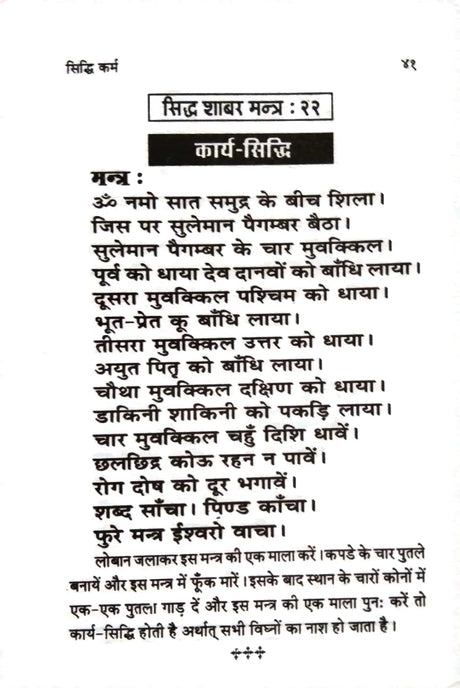 सिद्धि कर्म ४१
सिद्ध शाबर मन्त्र : २२
कार्य-सिद्धि
मन्त्र :
ॐ नमो सात समुद्र के बीच शिला।
जिस पर सुलेमान पैगम्बर बैठा।
सुलेमान पैगम्बर के चार मुवक्किल।
पूर्व को धाया देव दानवों को बाँधि लाया।
दूसरा मुवक्किल पश्चिम को धाया।
भूत-प्रेत कू बाँधि लाया।
तीसरा मुवक्किल उत्तर को धाया।
अयुत पितृ को बाँधि लाया।
चौथा मुवक्किल दक्षिण को धाया।
डाकिनी शाकिनी को पकड़ि लाया।
चार मुवक्किल चहुँ दिशि धावें।
छलछिद्र कोऊ रहन न पावें।
रोग दोष को दूर भगावें।
शब्द साँचा। पिण्ड काँचा।
फुरे मन्त्र ईश्वरो वाचा।
लोबान जलाकर इस मन्त्र की एक माला करें। कपडे के चार पुतले
बनायें और इस मन्त्र में फूँक मारें। इसके बाद स्थान के चारों कोनों में
एक-एक पुतला गाड़ दें और इस मन्त्र की एक माला पुनः करें तो
कार्य-सिद्धि होती है अर्थात् सभी विघ्नों का नाश हो जाता है।